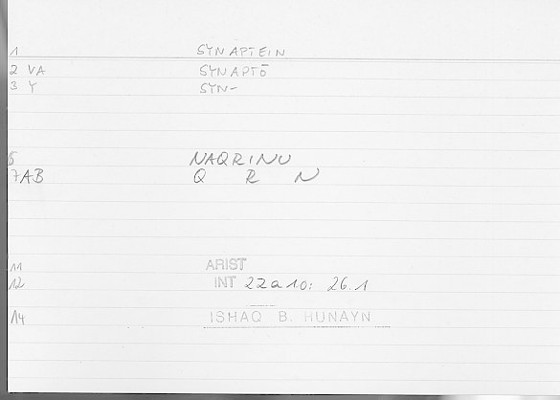 1 SYNAPTEIN
2 VA SYNAPTŌ
3 Y SYN-
5 NAQRINU
7AB Q R N
11 ARIST
12 INT 22a10: 26.1
14 ISHAQ B. HUNAYN